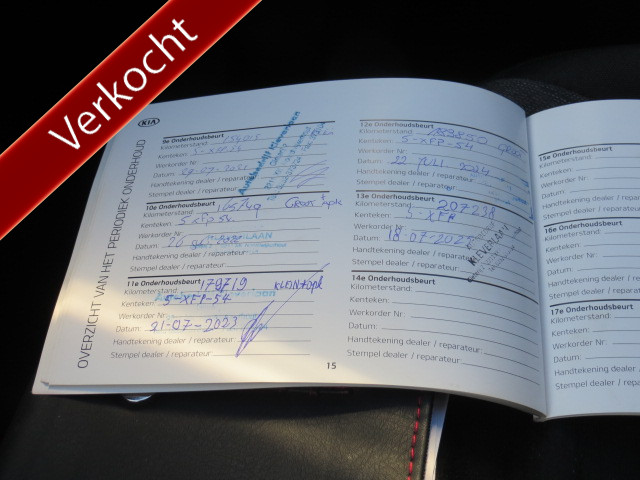 Verkocht
KIA
OVERZICHT VAN HET PERIODIEK ONDERHOUD
9e Onderhoudsbeurt
Kilometerstand
Kenteken:
Werkorder Nr.
Datum:
Handtekening dealer / reparateur
Stempel dealer / reparateur:
10e Onderhoudsbeurt
Kilometerstand:
Kenteken:
Werkorder Nr:
Datum: 20
Handtekening dealer / reparateur:
Stempel dealer / reparateur:
11e Onderhoudsbeurt
Kilometerstand: 179719
Kenteken: 5-XFP-54
Werkorder Nr:
Datum: 21-07-2023
Handtekening dealer / reparateur:
Stempel dealer / reparateur:
15
12e Onderhoudsbeurt
Kilometerstand: 189850
Kenteken: 5-XFP-54
Werkorder Nr
Datum: 22 JULI 2024
Handtekening dealer / reparateur:
Stempel dealer / reparateur:
13e Onderhoudsbeurt
Kilometerstand: 207238
Kenteken: 5-XFP
Werkorder Nr:
Datum: 18 07-202
KLEVERLAAN
Handtekening dealer / reparateur:
Stempel dealer / reparateur:
14e Onderhoudsbeurt
Kilometerstand:
Kenteken:
Werkorder Nr:
Datum:
Handtekening dealer / reparateur:
Stempel dealer / reparateur:
15e Onderhoudsbeurt
Kilometerstand:
Kenteken:
Werkorder Nr:
Datum:
Handtekening dealer
Stempel dealer / r
16e Onderhoudsbe
Kilometerstand:
Kenteken:
Werkorder Nr:
Datum:
Handtekening dealer
Stempel dealer / rep
17e Onderhoudsbeur
Kilometerstand:
Kenteken:
Werkorder Nr:
Datum:
Handtekening dealer / re
Stempel dealer / reparate